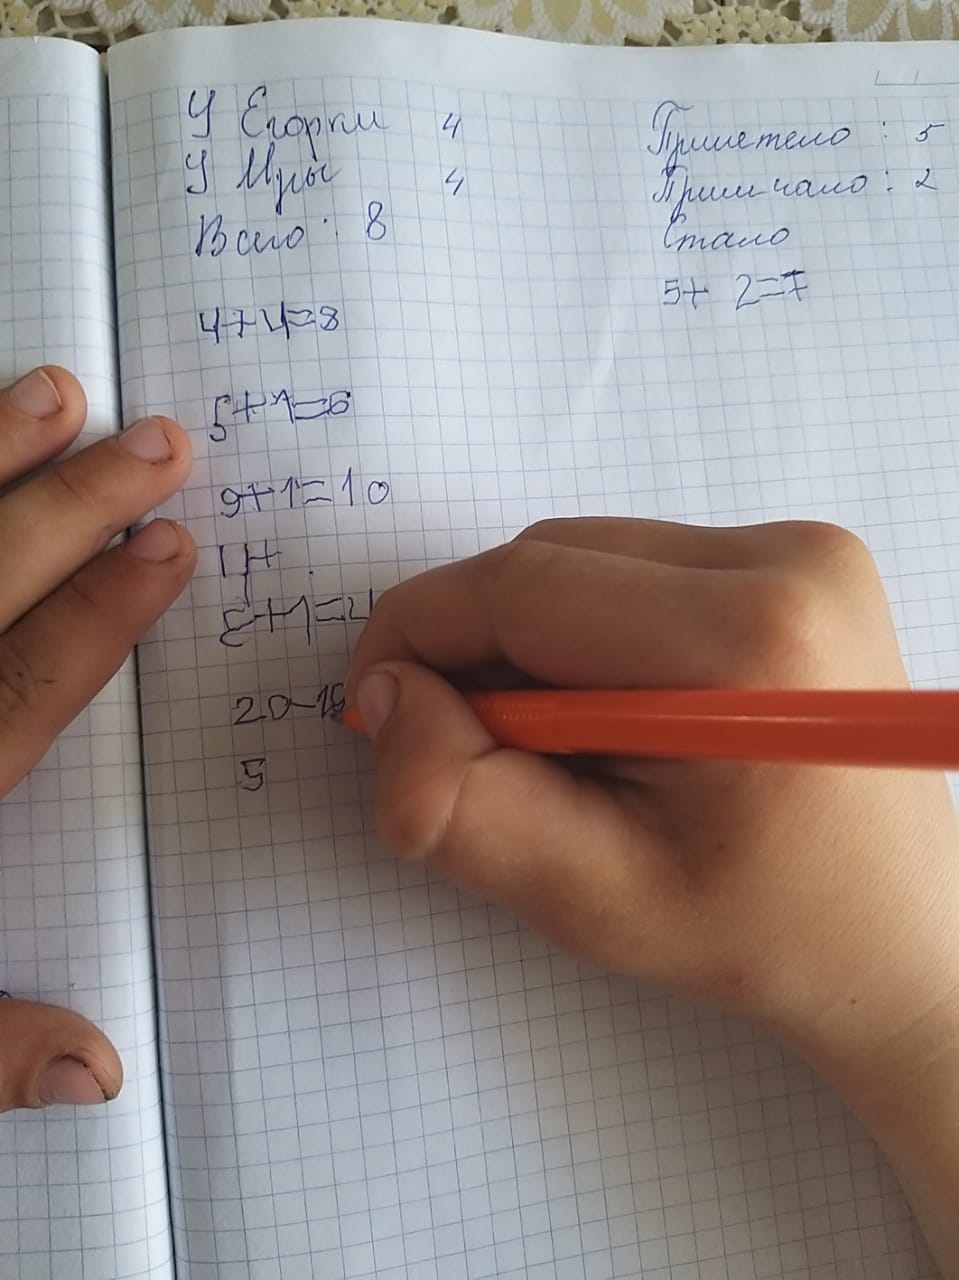 У Егорки 4
У Иры 4
Всего: 8
4+4=8
5+1=6
9+1=10
+1=4
20-1
5
Прилетело: 5
Примчало: 2
Стало
5+ 2=7